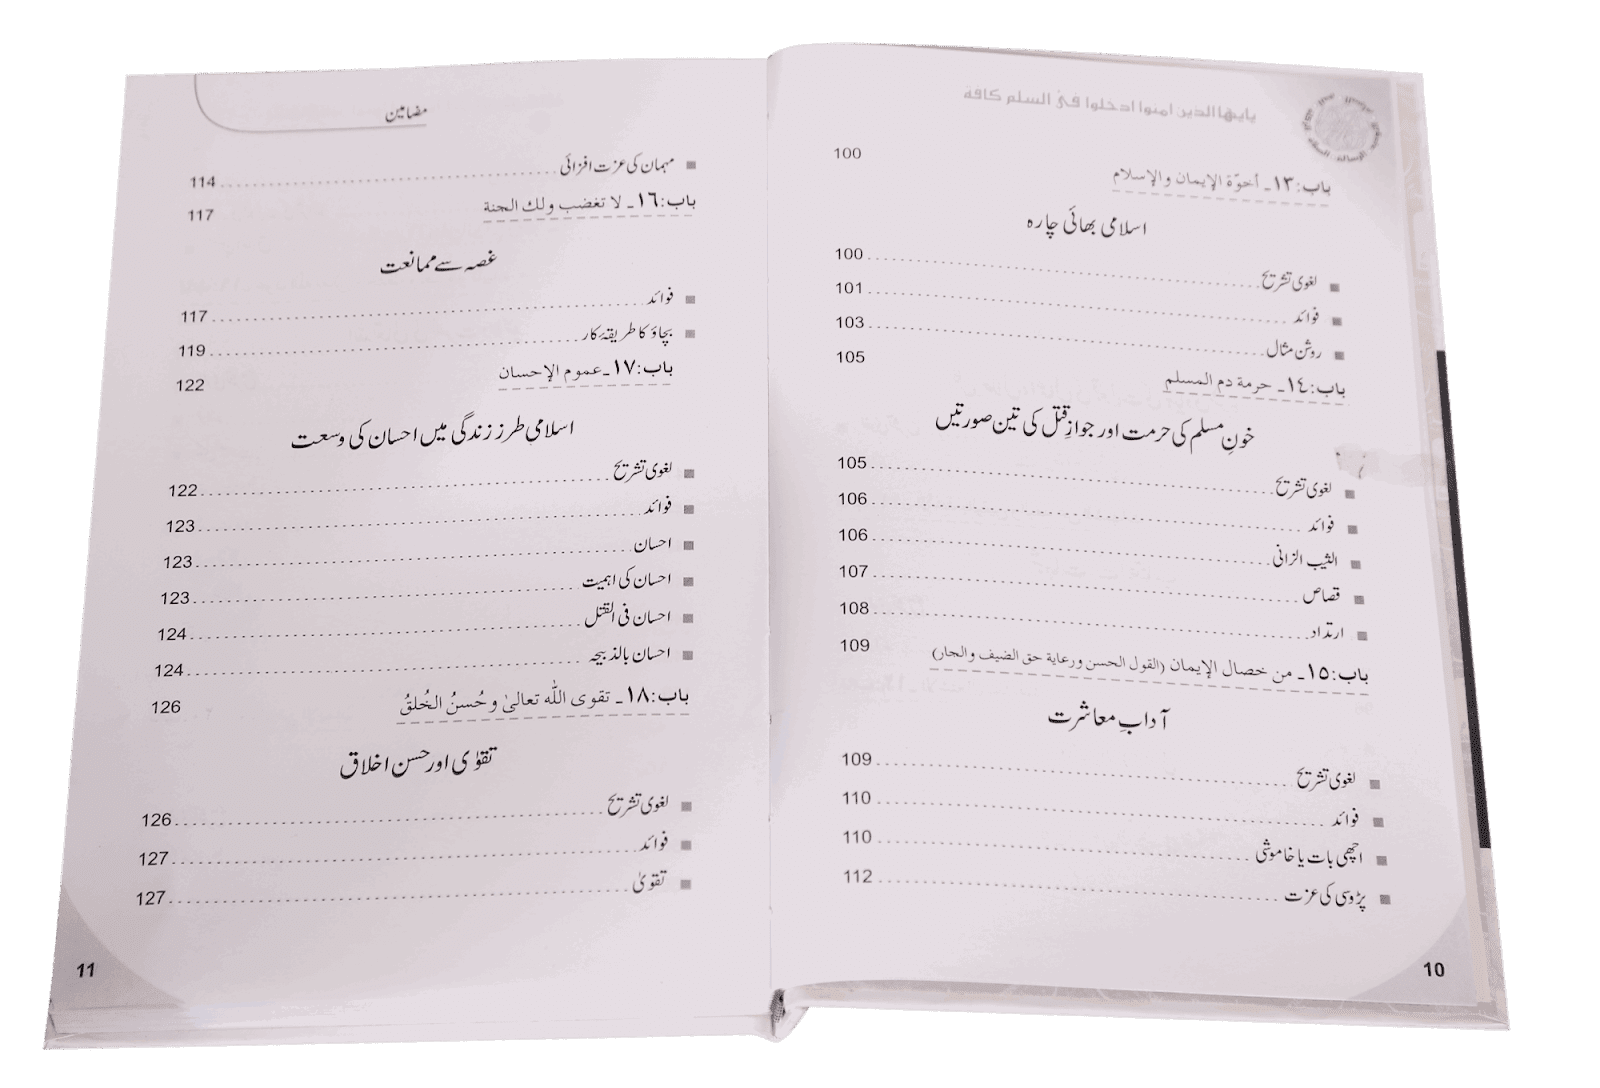 يايها الذين امنوا ادخلوا في السلم كافة
باب:١٣۔ أخوّة الإيمان والإسلام 100
اسلامی بھائی چارہ
لغوی تشریح 100
فوائد 101
روشن مثال 103
باب:١٤۔ حرمة دم المسلم 105
خونِ مسلم کی حرمت اور جوازِ قتل کی تین صورتیں
لغوی تشریح 105
فوائد 106
الثیب الزانی 106
قصاص 107
ارتداد 108
باب:١٥۔ من خصال الإيمان (القول الحسن ورعاية حق الضيف والجار) 109
آدابِ معاشرت
لغوی تشریح 109
فوائد 110
اچھی بات یا خاموشی 110
پڑوسی کی عزت 112
10
مضامین
مہمان کی عزت افزائی 114
باب:١٦۔ لا تغضب ولك الجنة 117
غصہ سے ممانعت
فوائد 117
بچاؤ کا طریقۂ کار 119
باب:١٧۔ عموم الإحسان 122
اسلامی طرز زندگی میں احسان کی وسعت
لغوی تشریح 122
فوائد 123
احسان 123
احسان کی اہمیت 123
احسان فی القتل 124
احسان بالذبیحہ 124
باب:١٨۔ تقوى الله تعالىٰ وحُسنُ الخُلقُ 126
تقوٰی اور حسن اخلاق
لغوی تشریح 126
فوائد 127
تقویٰ 127
11